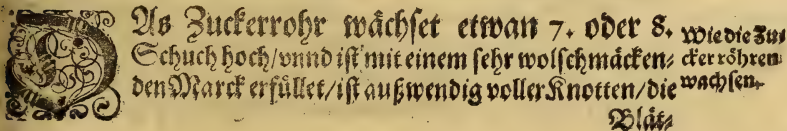 DAs Zuckerrohr wächset etwan 7. oder 8.
Schuch hoch/vnnd ist mit einem sehr wolschmäcken-
den Marck erfüllet/ist außwendig voller Knotten/die
Blät-
Wie die Zu-
cker röhren
wachsen.